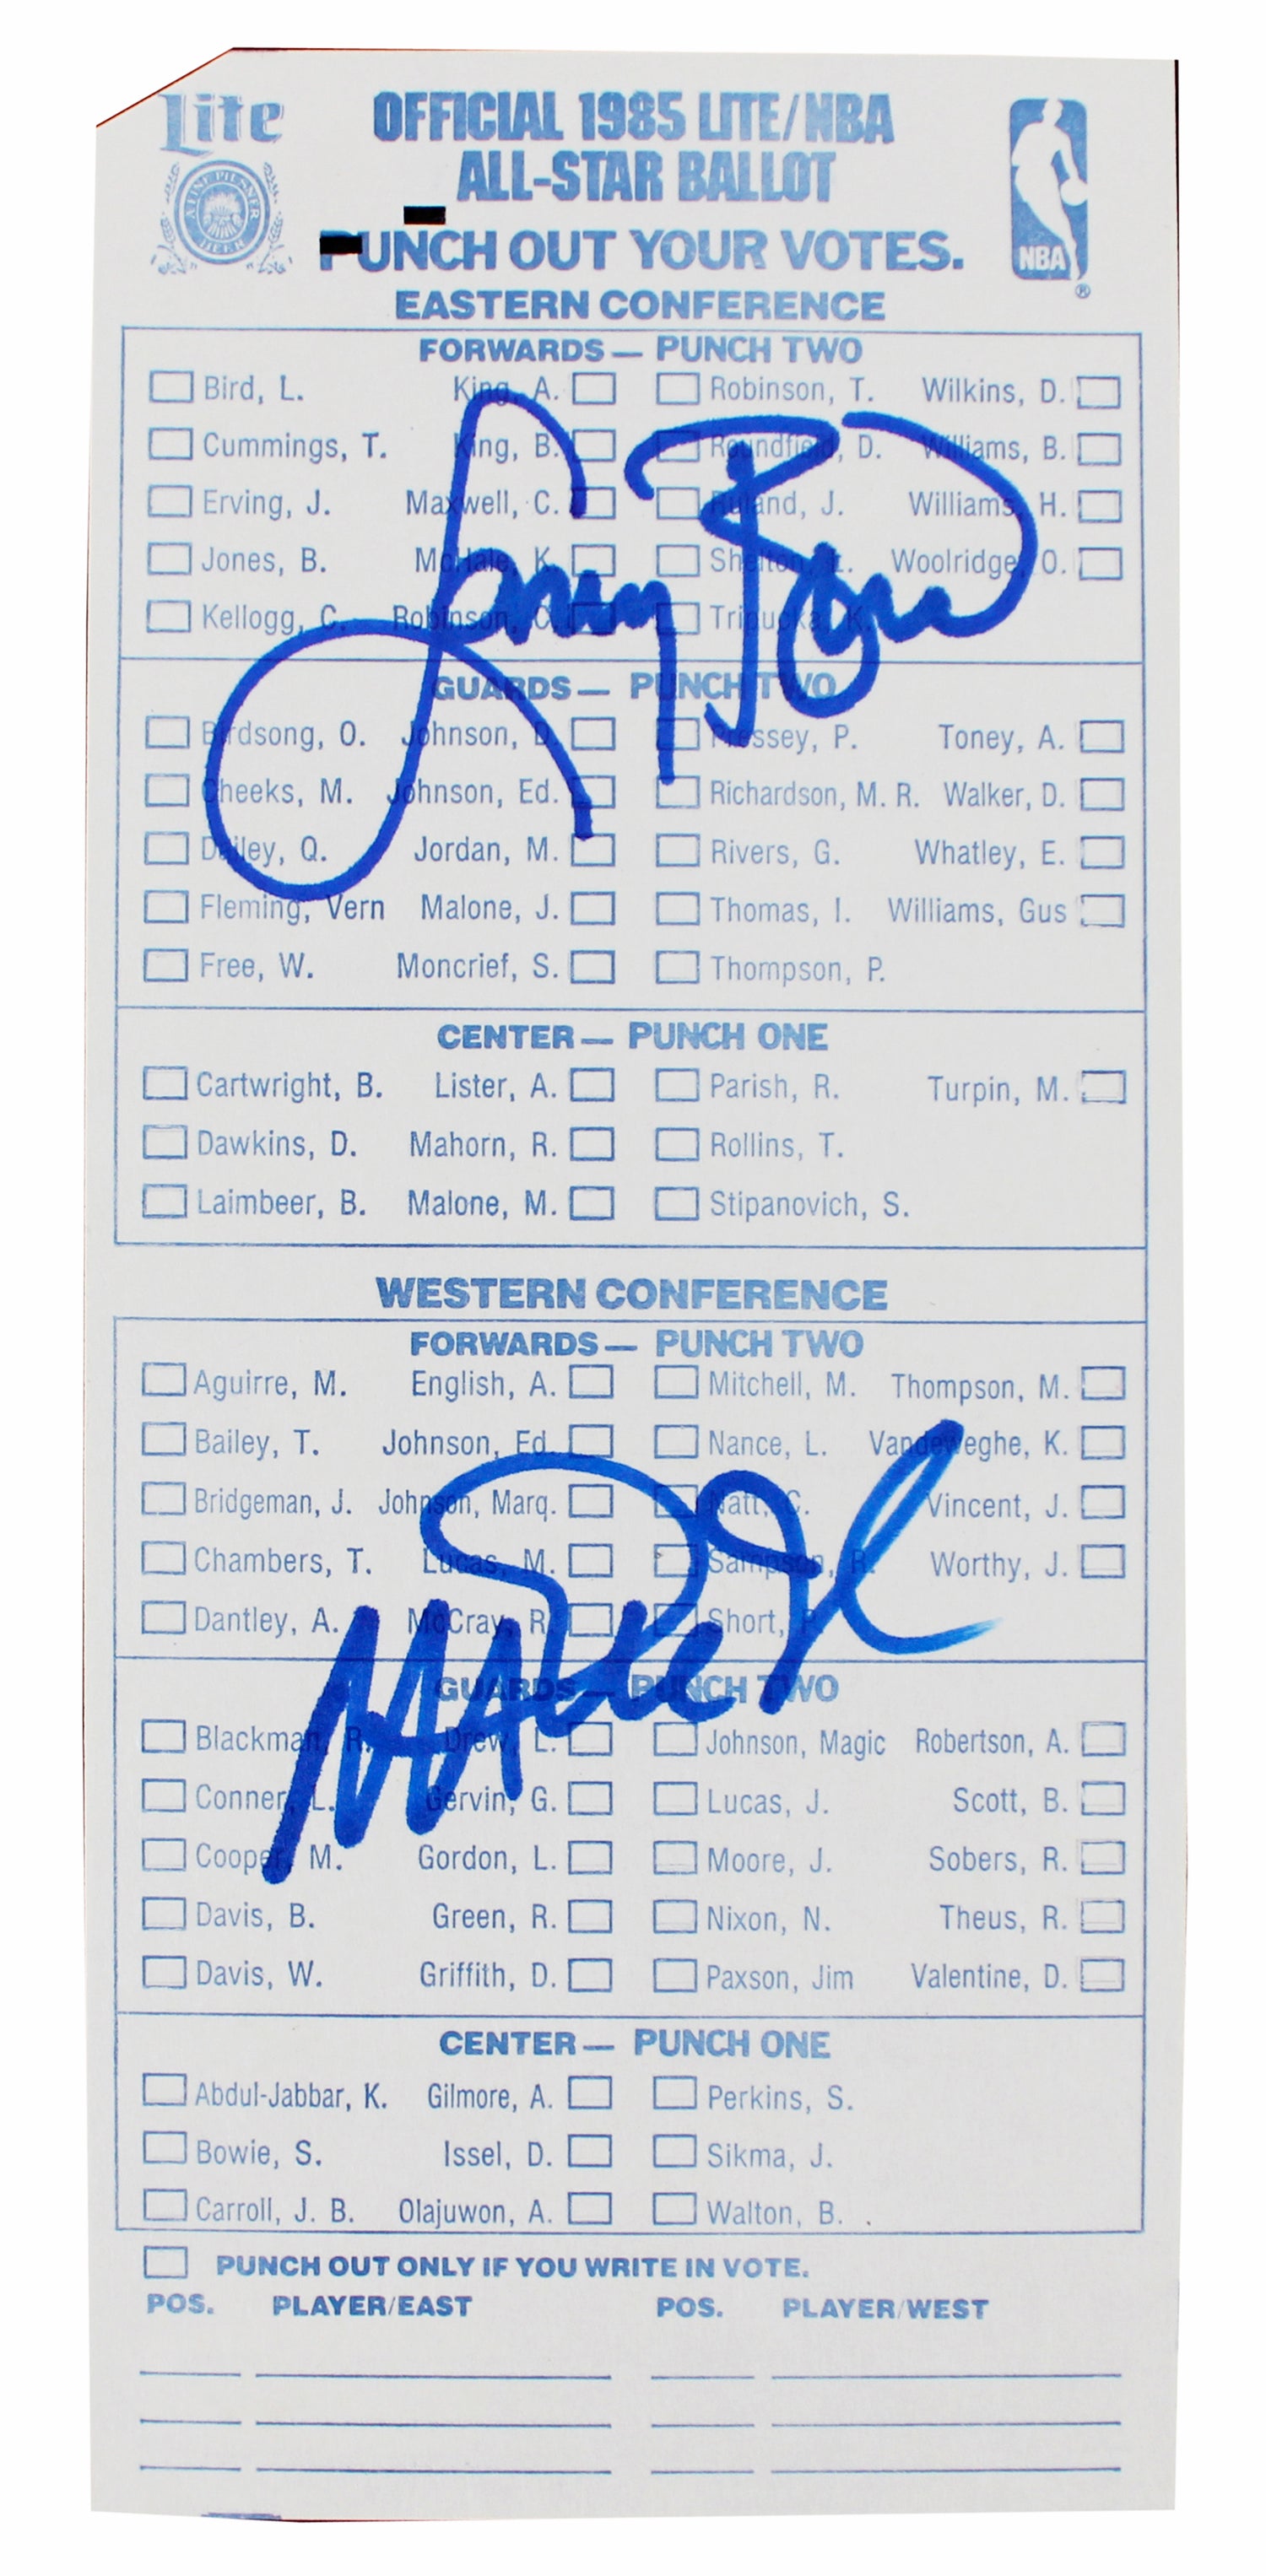 Lite
A FINE PILSNER BEER
OFFICIAL 1985 LITE/NBA
ALL-STAR BALLOT
PUNCH OUT YOUR VOTES.
NBA
®
EASTERN CONFERENCE
FORWARDS — PUNCH TWO
Bird, L. King, A. Robinson, T. Wilkins, D.
Cummings, T. King, B. Roundfield, D. Williams, B.
Erving, J. Maxwell, C. Ruland, J. Williams, H.
Jones, B. McHale, K. Shelton, L. Woolridge, O.
Kellogg, C. Robinson, C. Tripucka, K.
Larry Bird
GUARDS — PUNCH TWO
Birdsong, O. Johnson, D. Pressey, P. Toney, A.
Cheeks, M. Johnson, Ed. Richardson, M. R. Walker, D.
Dailey, Q. Jordan, M. Rivers, G. Whatley, E.
Fleming, Vern Malone, J. Thomas, I. Williams, Gus
Free, W. Moncrief, S. Thompson, P.
CENTER — PUNCH ONE
Cartwright, B. Lister, A. Parish, R. Turpin, M.
Dawkins, D. Mahorn, R. Rollins, T.
Laimbeer, B. Malone, M. Stipanovich, S.
WESTERN CONFERENCE
FORWARDS — PUNCH TWO
Aguirre, M. English, A. Mitchell, M. Thompson, M.
Bailey, T. Johnson, Ed. Nance, L. Vandeweghe, K.
Bridgeman, J. Johnson, Marq. Natt, C. Vincent, J.
Chambers, T. Lucas, M. Sampson, R. Worthy, J.
Dantley, A. McCray, R. Short, P.
GUARDS — PUNCH TWO
Blackman, R. Drew, L. Johnson, Magic Robertson, A.
Conner, L. Gervin, G. Lucas, J. Scott, B.
Cooper, M. Gordon, L. Moore, J. Sobers, R.
Davis, B. Green, R. Nixon, N. Theus, R.
Davis, W. Griffith, D. Paxson, Jim Valentine, D.
CENTER — PUNCH ONE
Abdul-Jabbar, K. Gilmore, A. Perkins, S.
Bowie, S. Issel, D. Sikma, J.
Carroll, J. B. Olajuwon, A. Walton, B.
PUNCH OUT ONLY IF YOU WRITE IN VOTE.
POS. PLAYER/EAST POS. PLAYER/WEST